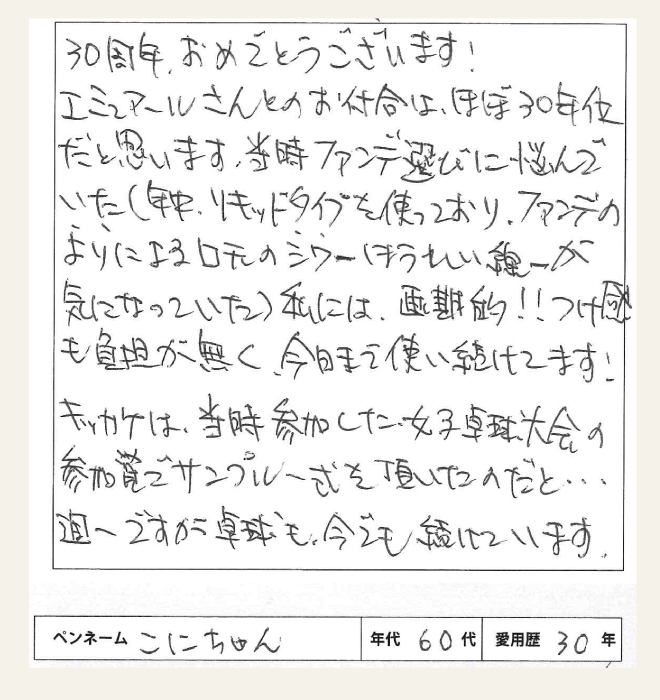 30周年、おめでとうございます!
エミュアールさんとのお付合は、ほぼ30年位
だと思います。当時ファンデ選びに悩んで
いた(年中、リキッドタイプを使っており、ファンデの
よりによる口元のシワーほうれい線ーが
気になっていた)私には、画期的!!つけ感
も負担が無く、今日まで使い続けてます!
キッカケは、当時参加した、女子卓球大会の
参加賞でサンプル一式を頂いたのだと・・・
週一ですが卓球も、今でも続けています。
ペンネーム こにちゃん 年代 60代 愛用歴 30年